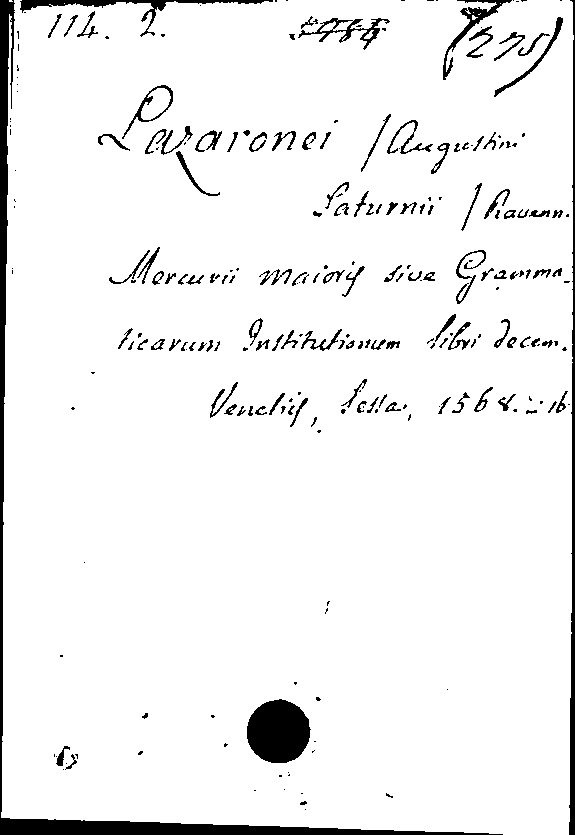 114. 2. (275)
Lazaronei / Augustini
Saturnii / Ravenn.
Mercurii maioris sive Gramma-
ticarum Institutionum libri decem.
Venetiis, Sessa, 1568. 16